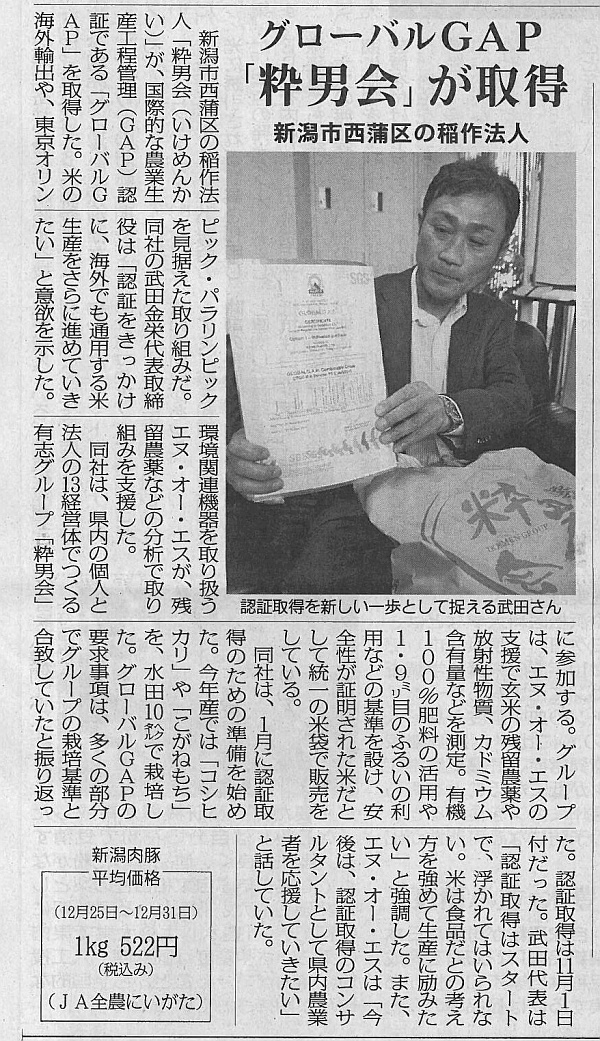 グローバルGAP
「粋男会」が取得
新潟市西蒲区の稲作法人
新潟市西蒲区の稲作法
人「粋男会(いけめんか
い)」が、国際的な農業生
産工程管理(GAP)認
証である「グローバルG
AP」を取得した。米の
海外輸出や、東京オリン
ピック・パラリンピック
を見据えた取り組みだ。
同社の武田金栄代表取締
役は「認証をきっかけ
に、海外でも通用する米
生産をさらに進めていき
たい」と意欲を示した。
環境関連機器を取り扱う
エヌ・オー・エスが、残
留農薬などの分析で取り
組みを支援した。
同社は、県内の個人と
法人の13経営体でつくる
有志グループ「粋男会」
認証取得を新しい一歩として捉える武田さん
に参加する。グループ
は、エヌ・オー・エスの
支援で玄米の残留農薬や
放射性物質、カドミウム
含有量などを測定。有機
100%肥料の活用や
1・9㍉目のふるいの利
用などの基準を設け、安
全性が証明された米だと
して統一の米袋で販売を
している。
同社は、1月に認証取
得のための準備を始め
た。今年産では「コシヒ
カリ」や「こがねもち」
を、水田10㌶で栽培し
た。グローバルGAPの
要求事項は、多くの部分
でグループの栽培基準と
合致していたと振り返っ
た。認証取得は11月1日
付だった。武田代表は
「認証取得はスタート
で、浮かれてはいられな
い。米は食品だとの考え
方を強めて生産に励みた
い」と強調した。また、
エヌ・オー・エスは「今
後は、認証取得のコンサ
ルタントとして県内農業
者を応援していきたい」
と話していた。
新潟肉豚
平均価格
(12月25日〜12月31日)
1kg 522円
(税込み)
(JA全農にいがた)